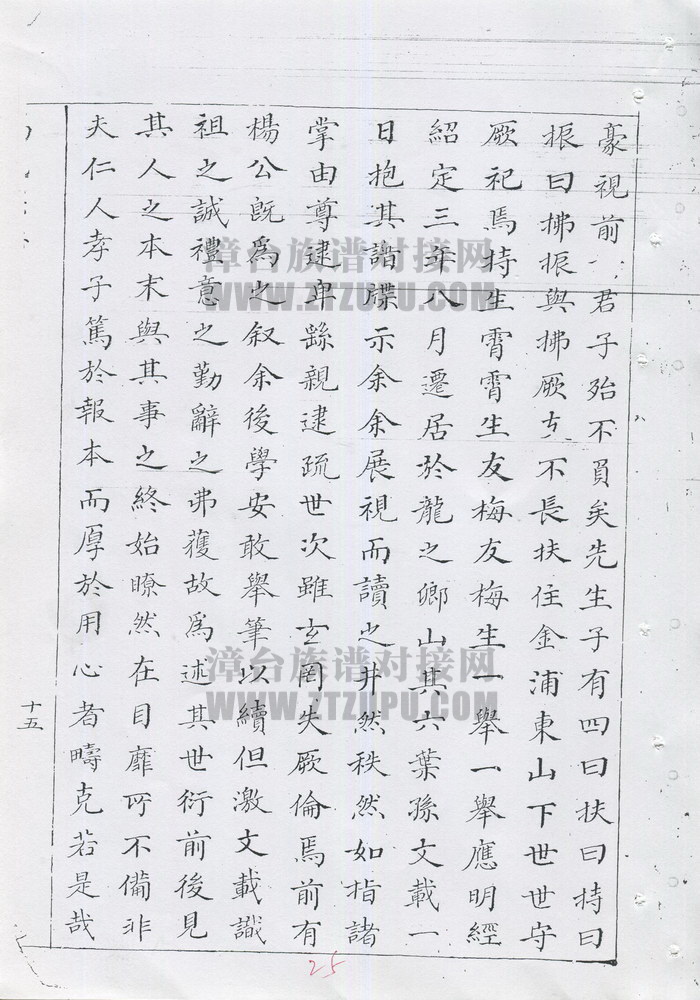 豪視前 君子殆不負矣先生子有四曰扶曰持曰
振曰拂振與拂厥 不長扶住金浦東山下世世守
厥祀焉持生霄霄生友梅友梅生一舉一舉應明經
紹定三年八月遷居於龍之鄉山其六葉孫文載一
日抱其譜牒示余余展視而讀之井然秩然如指諸
掌由尊逮卑繇親逮疏世次雖玄罔失厥倫焉前有
楊公既為之叙余後學安敢舉筆以續但激文載識
祖之誠禮意之勤辭之弗獲故為述其世衍前後見
其人之本末與其事之終始瞭然在目靡所不備非
夫仁人孝子篤於報本而厚於用心者疇克若是哉
十五
25
漳台族谱对接网
WWW.ZTZUPU.COM
漳台族谱对接网
WWW.ZTZUPU.COM